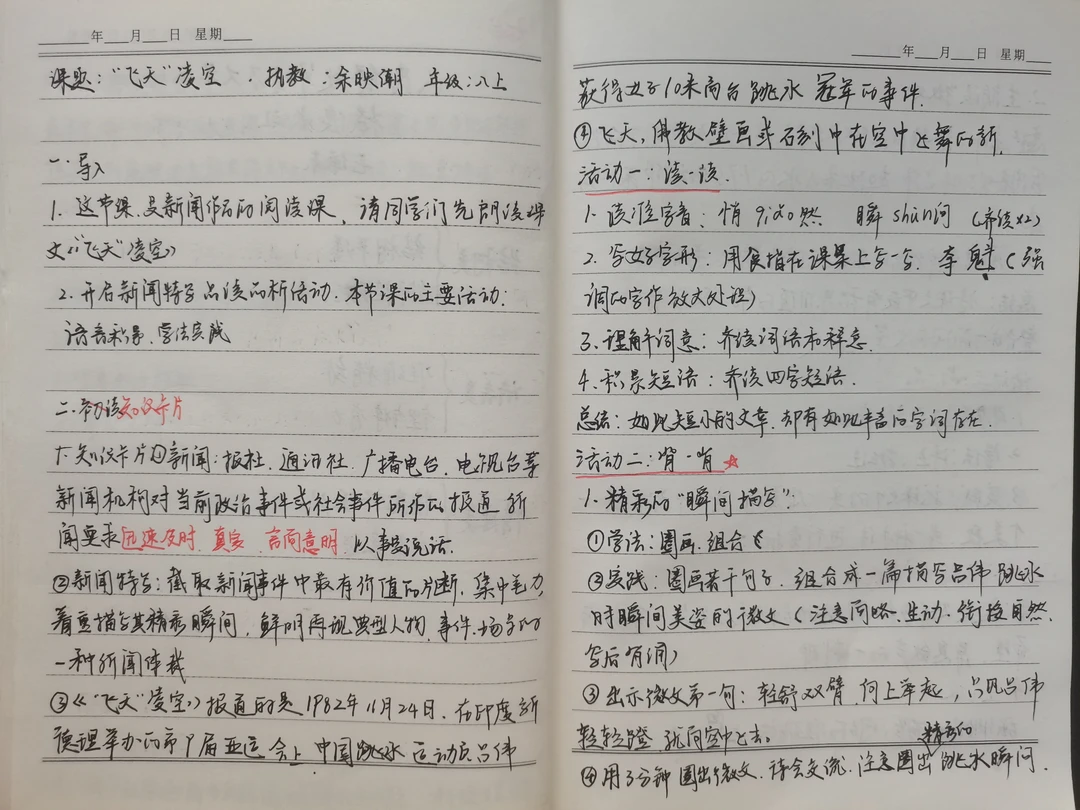 年 月 日 星期
课题：“飞天”凌空 . 执教：余映潮 年级：八上
一.导入
1. 这节课是新闻作品的阅读课，请同学们先朗读课
文《“飞天”凌空》
2. 开启新闻特写品读品析活动. 本节课的主要活动：
语言积累、学法实践
二.初读知识卡片
1. 知识卡片①新闻：报社、通讯社、广播电台、电视台等
新闻机构对当前政治事件或社会事件所作的报道. 新
闻要求迅速及时、真实、言简意明，以事实说话.
②新闻特写：截取新闻事件中最有价值的片断，集中笔力
着重描写其精彩瞬间，鲜明再现典型人物、事件、场景的
一种新闻体裁
③《“飞天”凌空》报道的是1982年11月24日，在印度新
德里举办的第9届亚运会上 中国跳水运动员吕伟
年 月 日 星期
获得女子10米高台跳水 冠军的事件.
④飞天，佛教壁画或石刻中在空中飞舞的神.
活动一：读一读.
1. 读准字音：悄 qiǎo然 瞬 shùn间 （齐读×2）
2. 写好字形：用食指在课桌上写一写. 夺 魁（强
调的字作放大处理）
3. 理解词意：齐读词语和释意.
4. 积累短语：齐读四字短语.
总结：如此短小的文章，却有如此丰富的字词存在.
活动二：背一背 ☆
1. 精彩的“瞬间描写”：
①学法：圈画. 组合
②实践：圈画若干句子，组合成一篇描写吕伟跳水
时瞬间美姿的微文（注意简略、生动、衔接自然.
写后背诵）
③出示微文第一句：轻舒双臂，向上举起，只见吕伟
轻轻一蹬，就向空中飞去。
④用3分钟 圈出微文，待会交流. 注意圈出精彩的跳水瞬间.